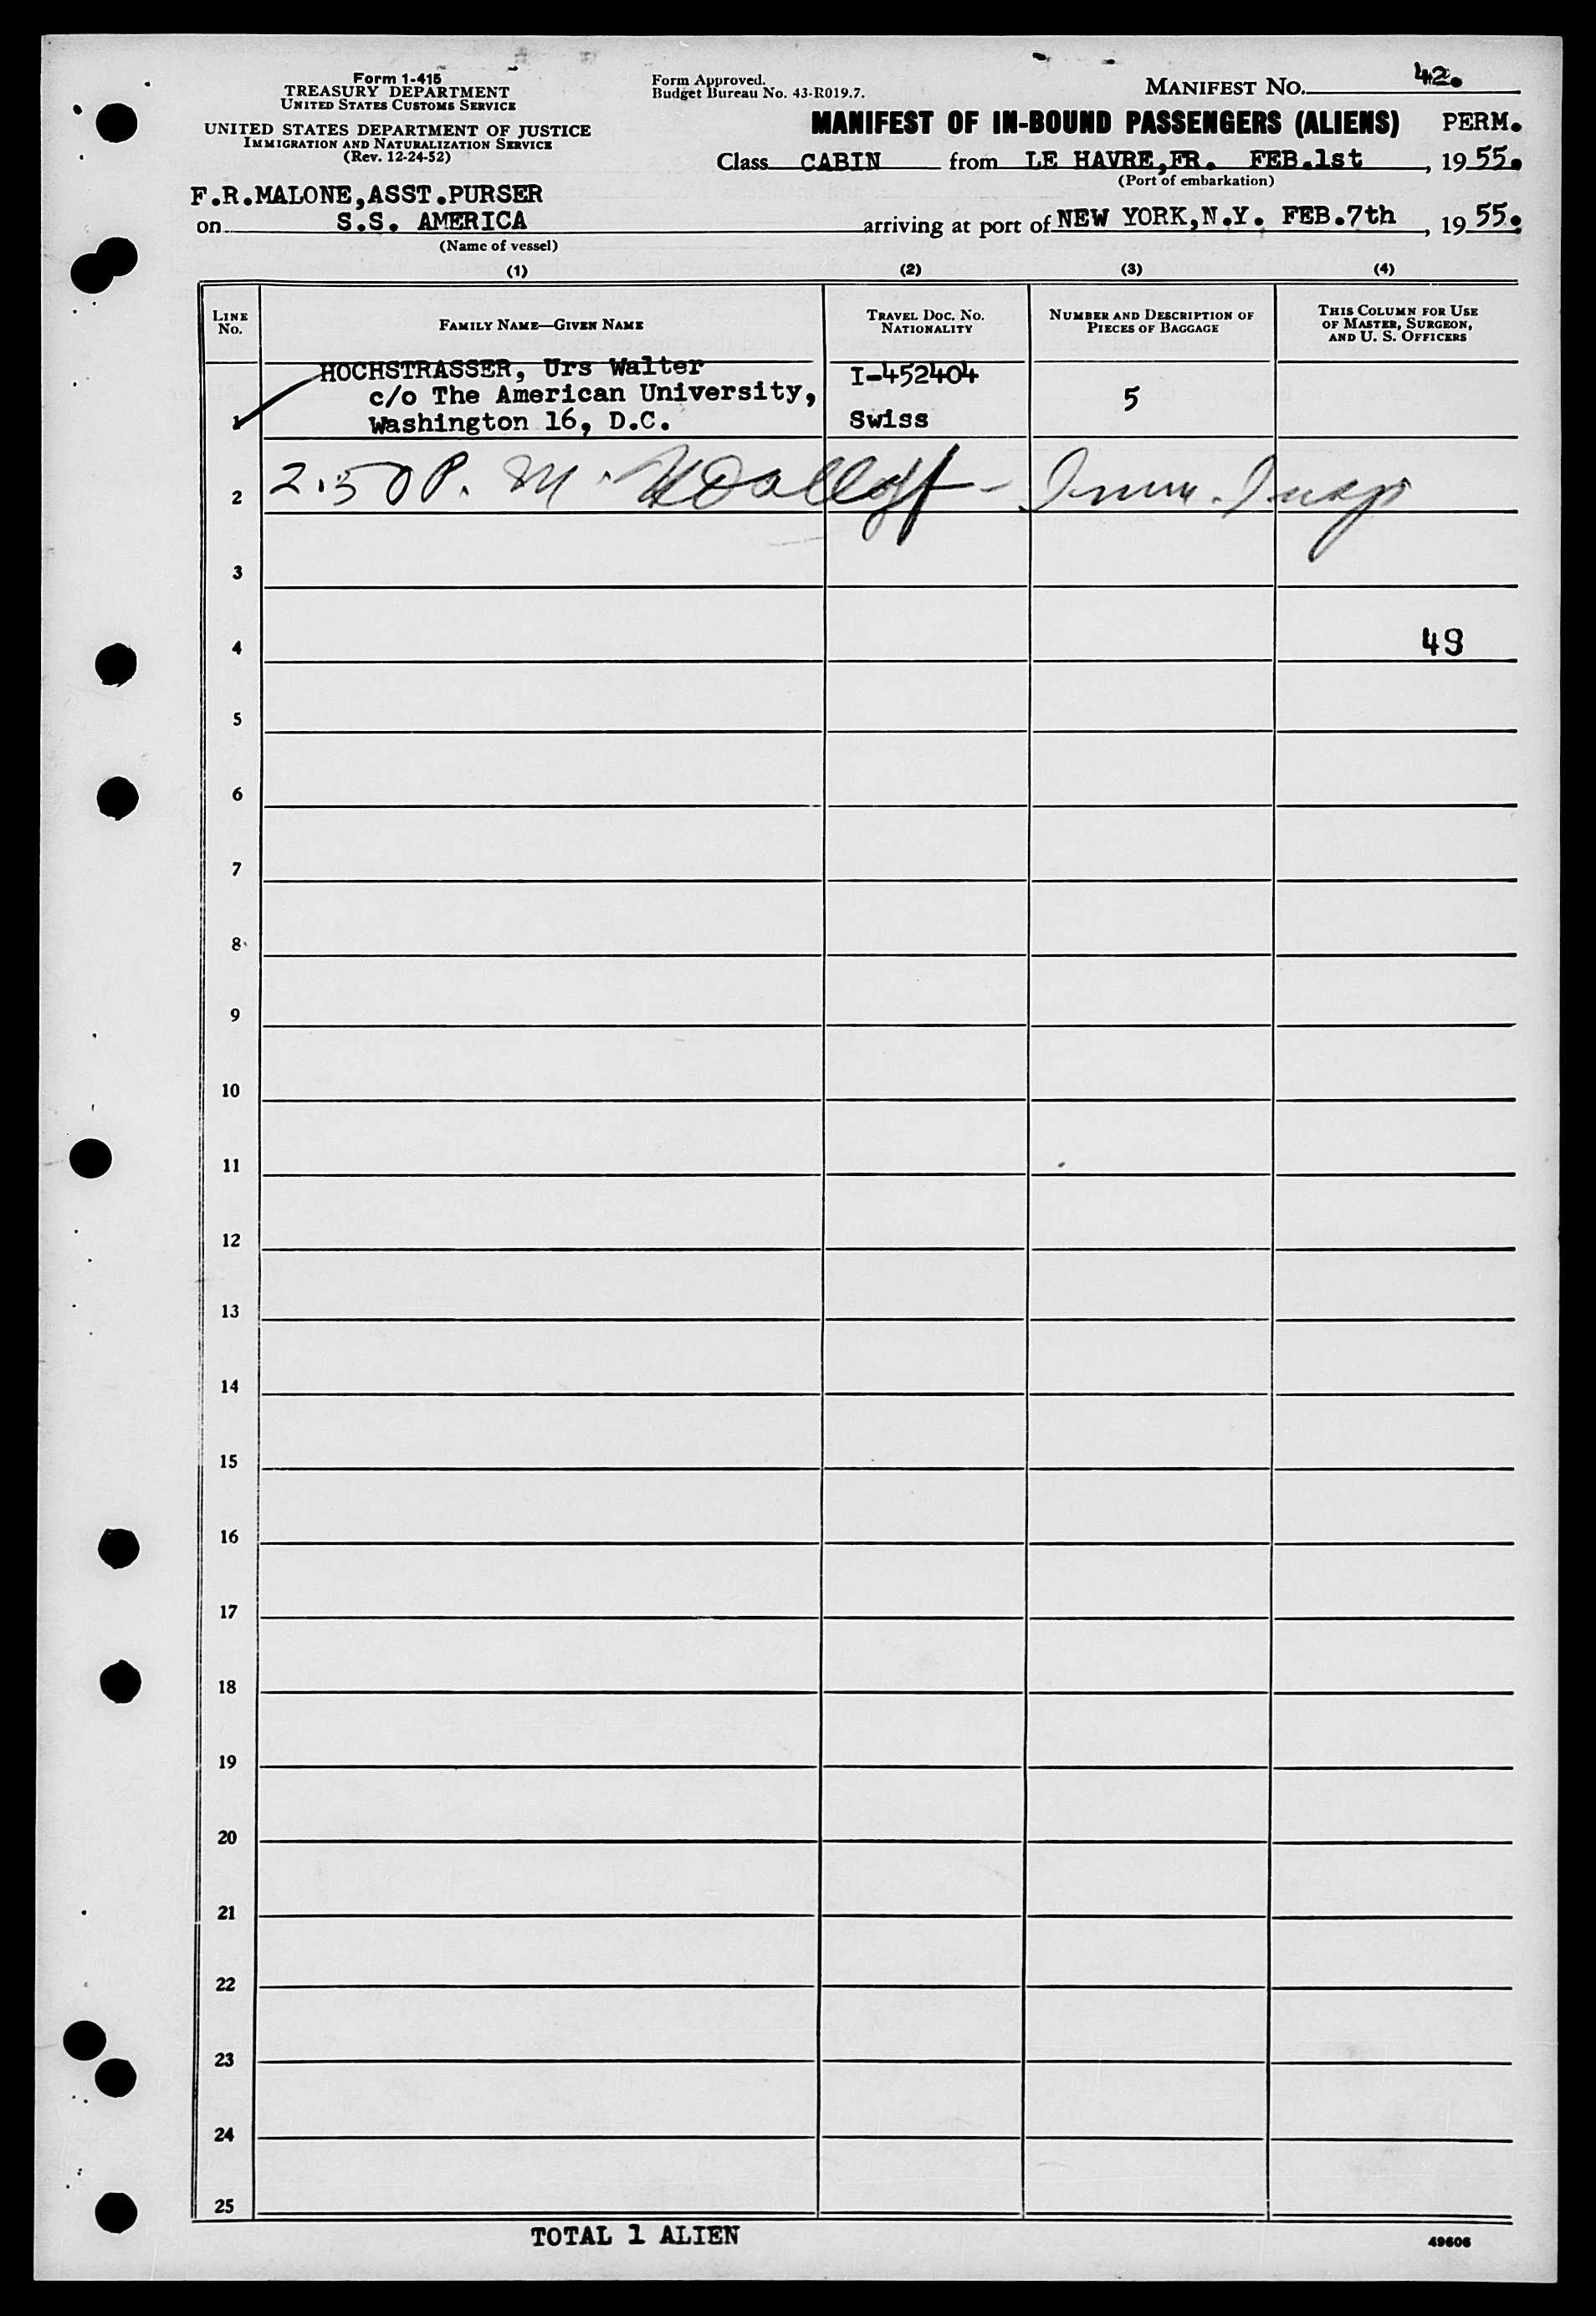 Form 1-415
TREASURY DEPARTMENT
UNITED STATES CUSTOMS SERVICE
UNITED STATES DEPARTMENT OF JUSTICE
IMMIGRATION AND NATURALIZATION SERVICE
(Rev. 12-24-52)
Form Approved.
Budget Bureau No. 43-R019.7.
MANIFEST NO. 42.
MANIFEST OF IN-BOUND PASSENGERS (ALIENS) PERM.
Class CABIN from LE HAVRE,FR. FEB.1st, 1955.
(Port of embarkation)
F.R.MALONE,ASST.PURSER
on S.S. AMERICA arriving at port of NEW YORK,N.Y. FEB.7th, 1955.
(Name of vessel)
(1) (2) (3) (4)
LINE NO. FAMILY NAME—GIVEN NAME TRAVEL DOC. NO. NATIONALITY NUMBER AND DESCRIPTION OF PIECES OF BAGGAGE THIS COLUMN FOR USE OF MASTER, SURGEON, AND U. S. OFFICERS
HOCHSTRASSER, Urs Walter I-452404
c/o The American University, 5
1 Washington 16, D.C. Swiss
2 2.50 P. M. Imm. Insp
3
4 49
5
6
7
8
9
10
11
12
13
14
15
16
17
18
19
20
21
22
23
24
25
TOTAL 1 ALIEN
49606